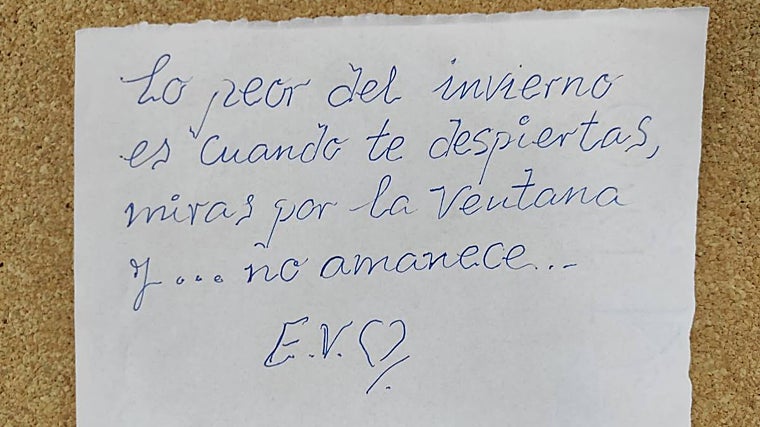 Lo peor del invierno
es cuando te despiertas,
miras por la ventana
y... no amanece...
E.V.